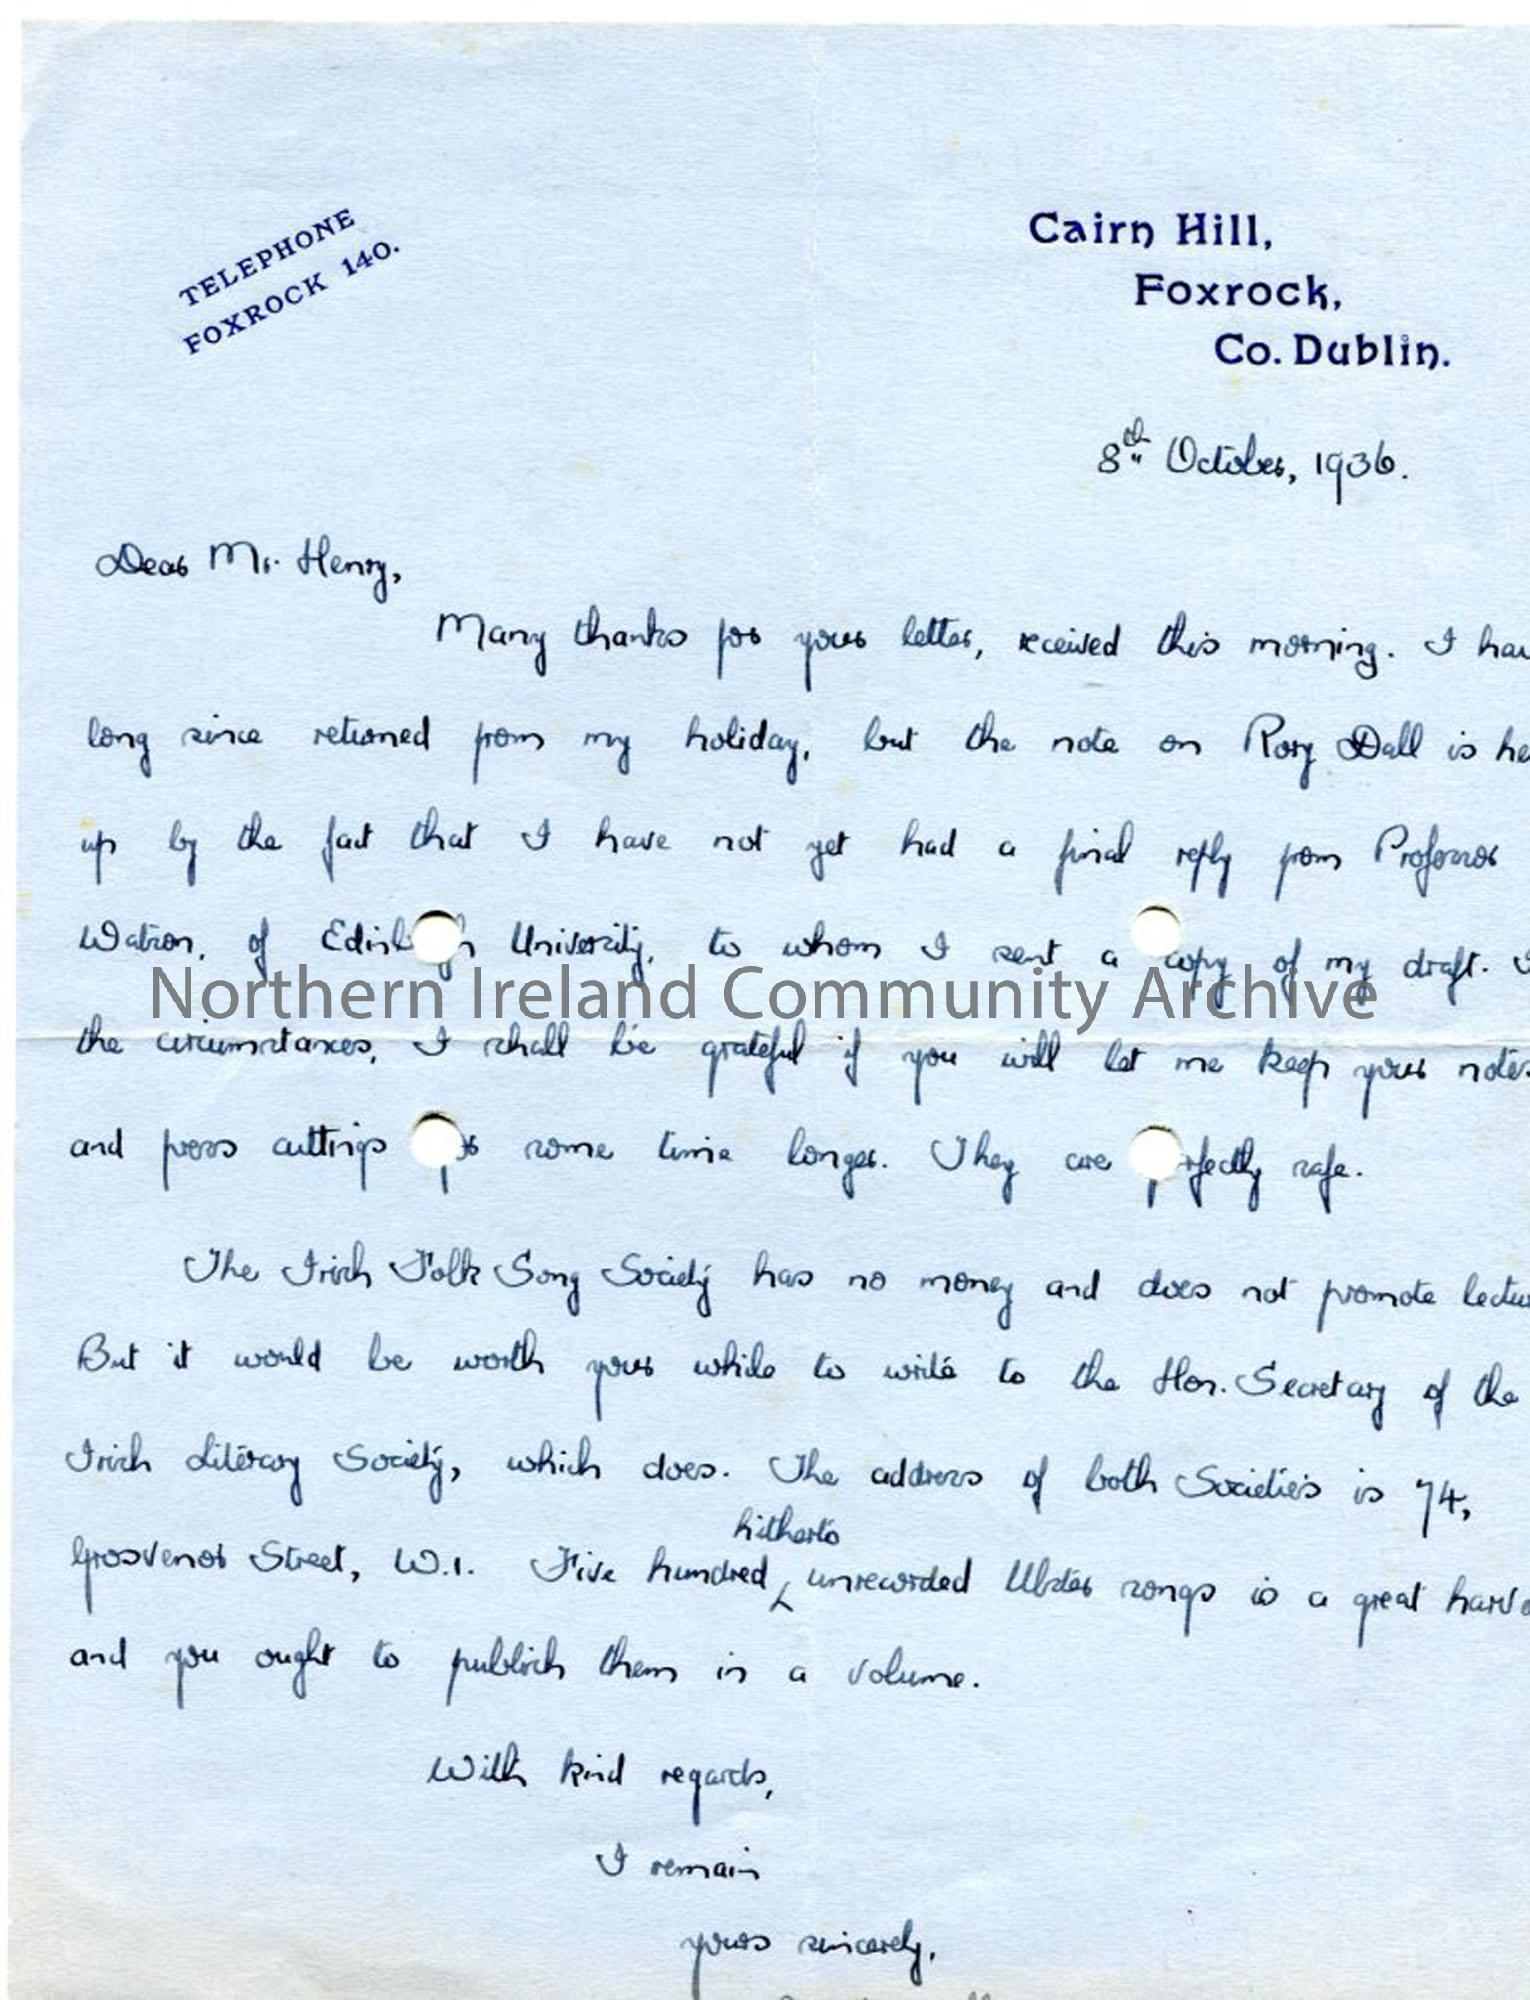 TELEPHONE
FOXROCK 140.
Cairn Hill,
Foxrock,
Co. Dublin.
8th October, 1936.
Dear Mr. Henry,
Many thanks for your letter, received this morning. I hav
long since returned from my holiday, but the note on Rory Dall is he
up by the fact that I have not yet had a final reply from Professor
Watson, of Edinburgh University, to whom I sent a copy of my draft.
Northern Ireland Community Archive
the circumstances, I shall be grateful if you will let me keep your notes
and press cuttings for some time longer. They are perfectly safe.
The Irish Folk Song Society has no money and does not promote lectu
But it would be worth your while to write to the Hon. Secretary of the
Irish Literary Society, which does. The address of both Societies is 74,
hitherto
Grosvenor Street, W.1. Five hundred unrecorded Ulster songs is a great harve
and you ought to publish them in a volume.
With kind regards,
I remain
yours sincerely,